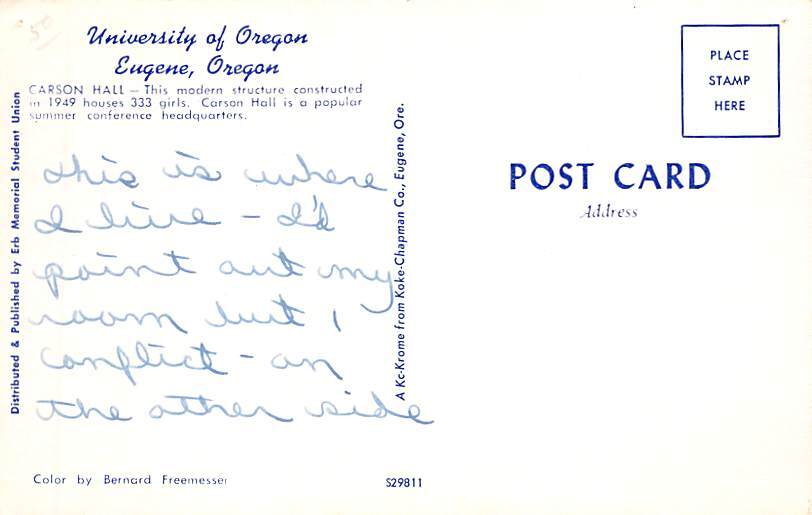 50
University of Oregon
Eugene, Oregon
CARSON HALL — This modern structure constructed
in 1949 houses 333 girls. Carson Hall is a popular
summer conference headquarters.
this is where
I live - I'd
point out my
room but I
conflict - on
the other side
Color by Bernard Freemesser
Distributed & Published by Erb Memorial Student Union
A Kc-Krome from Koke-Chapman Co., Eugene, Ore.
S29811
PLACE
STAMP
HERE
POST CARD
Address